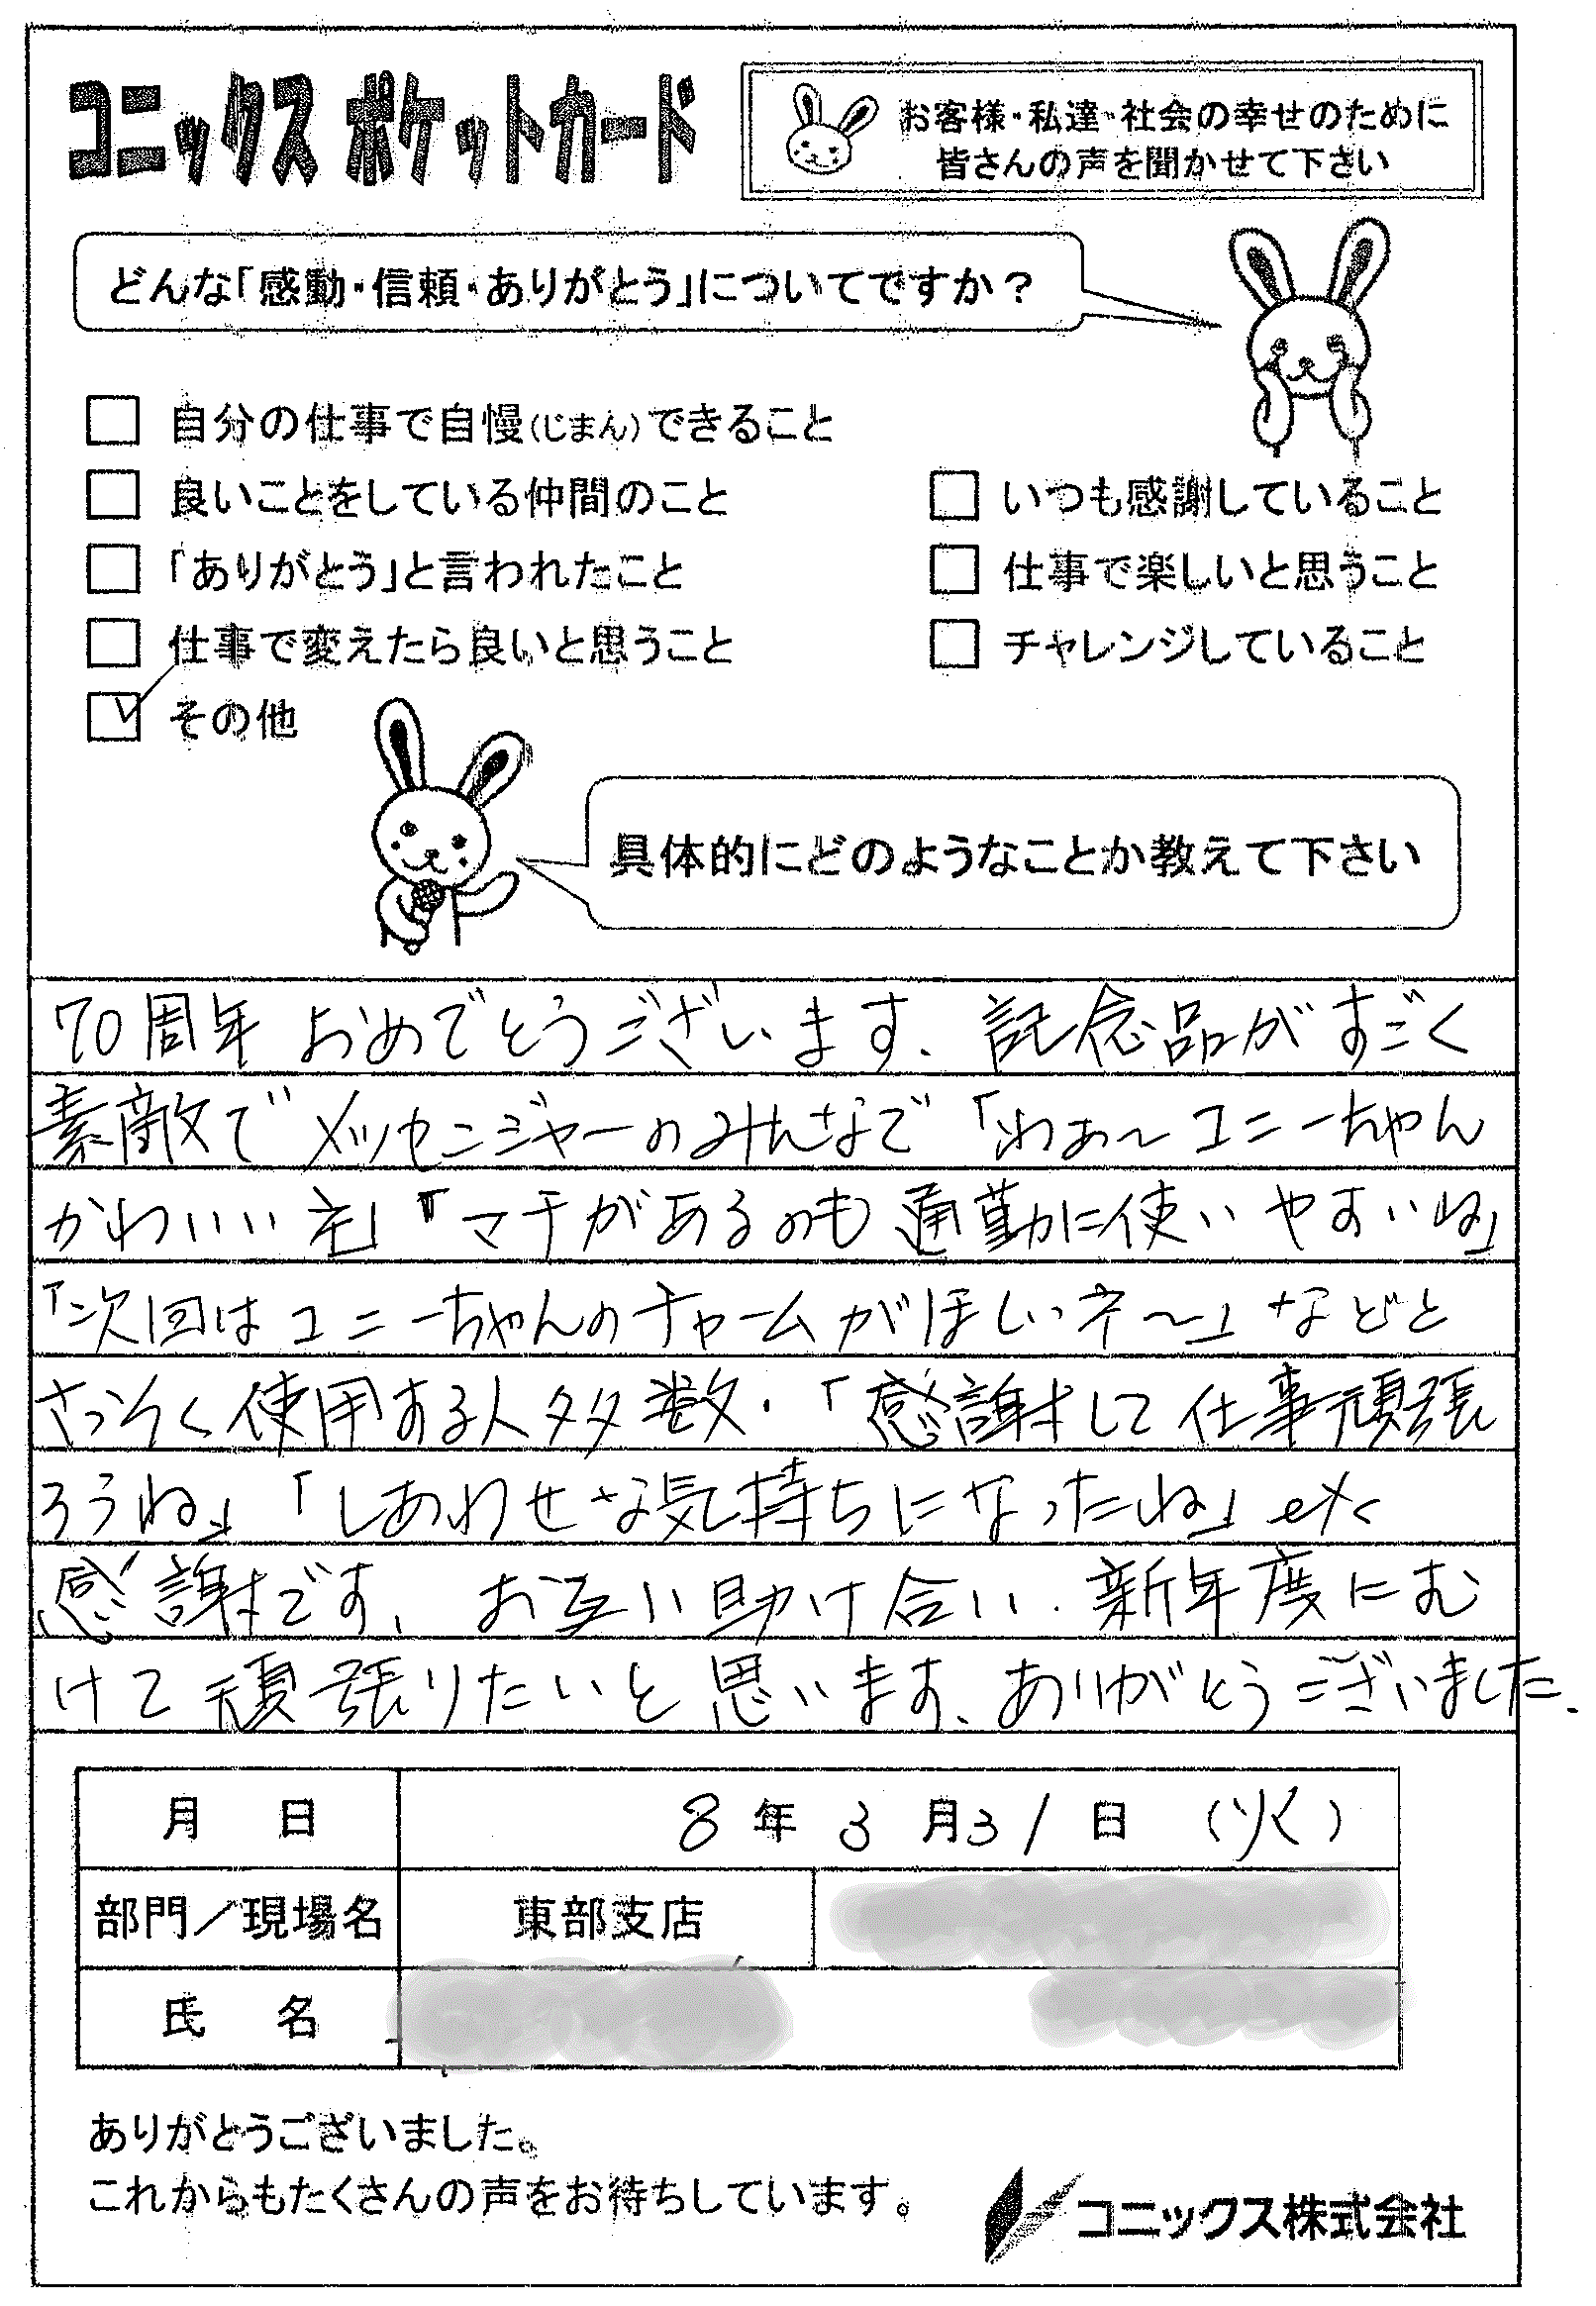 コニックス ポケットカード
お客様・私達・社会の幸せのために
皆さんの声を聞かせて下さい
どんな「感動・信頼・ありがとう」についてですか？
自分の仕事で自慢(じまん)できること
良いことをしている仲間のこと
いつも感謝していること
「ありがとう」と言われたこと
仕事で楽しいと思うこと
仕事で変えたら良いと思うこと
チャレンジしていること
その他
具体的にどのようなことか教えて下さい
70周年 おめでとうございます、記念品がすごく
素敵で メッセンジャーのみんなで「わぁ～コニーちゃん
かわいい」「マチがあるのも通勤に使いやすいね」
「次回はコニーちゃんのチャームがほしいネ～」などと
さっそく使用する人多数・「感謝して仕事頑張
ろうね」「しあわせな気持ちになったね」etc
感謝です、お互い助け合い、新年度にむ
けて頑張りたいと思います、ありがとうございました.
月 日 8年 3月31日 (火)
部門／現場名 東部支店
氏 名
ありがとうございました。
これからもたくさんの声をお待ちしています。
コニックス株式会社